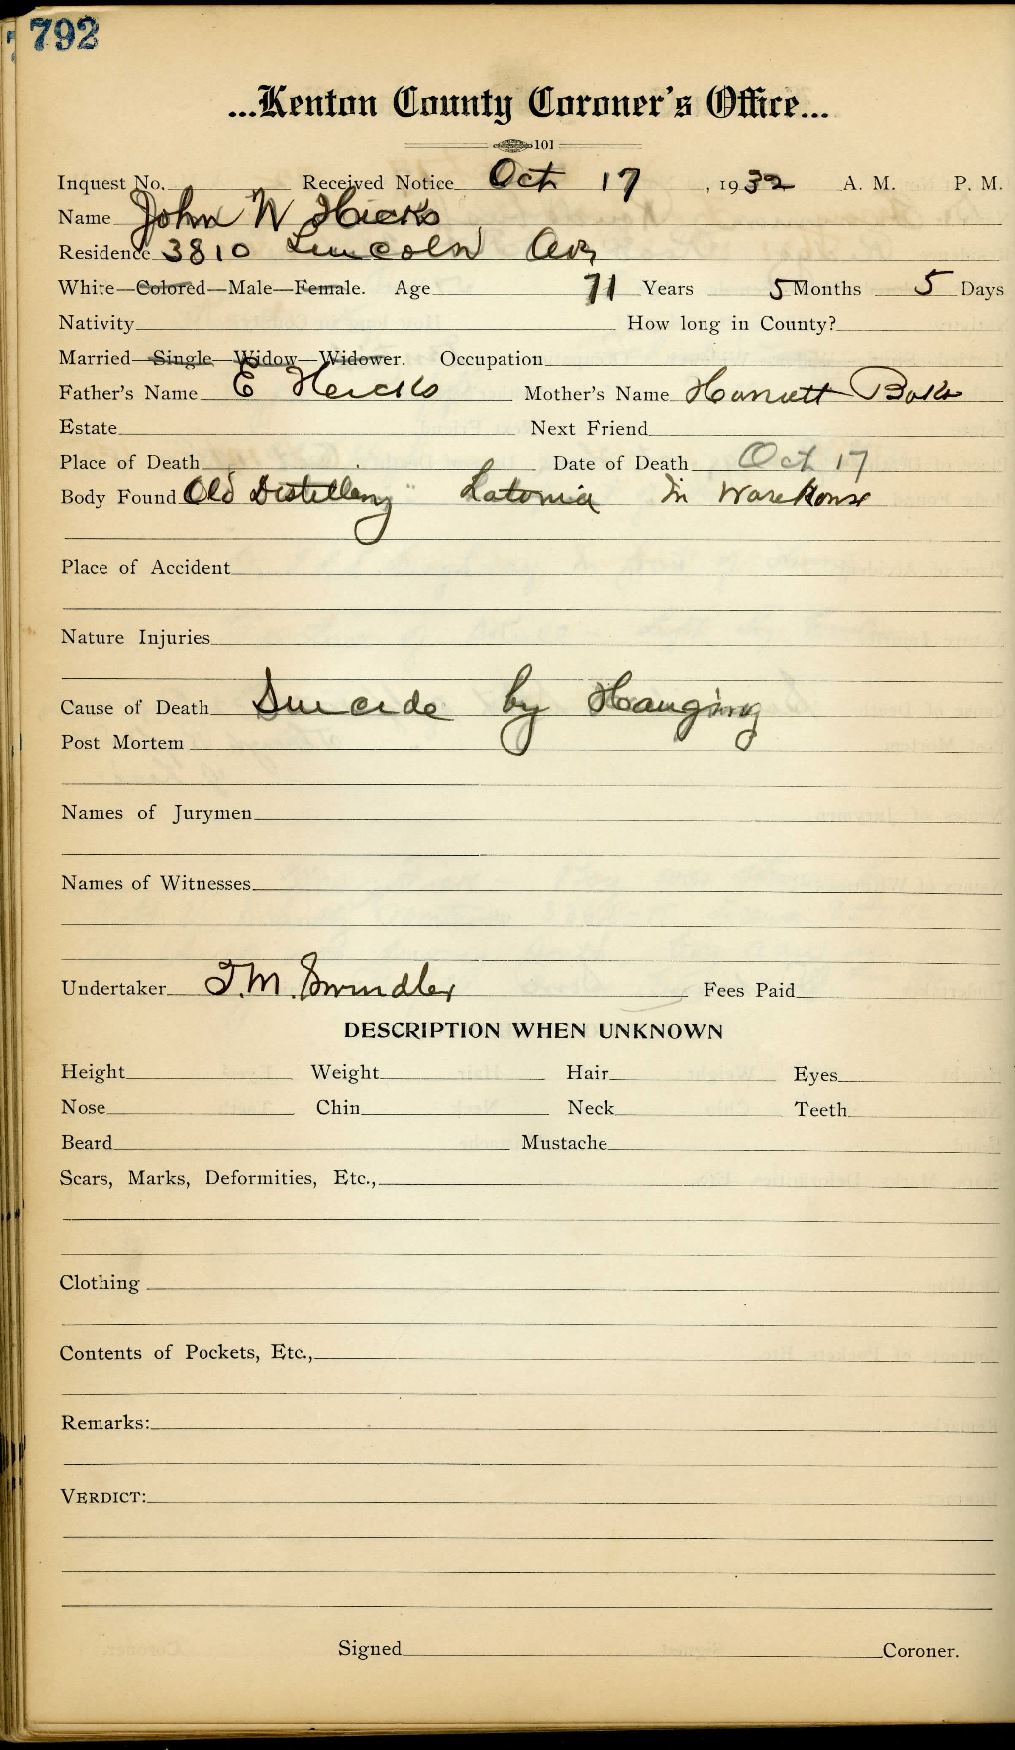 792
...Kenton County Coroner's Office...
101
Inquest No. Received Notice Oct 17, 1932 A. M. P. M.
Name John W Hicks
Residence 3810 Lincoln Av
White—Colored—Male—Female. Age 71 Years 5 Months 5 Days
Nativity How long in County?
Married—Single—Widow—Widower. Occupation
Father's Name E Hicks Mother's Name Harriett
Estate Next Friend
Place of Death Date of Death Oct 17
Body Found Old Distillery Latonia In Warehouse
Place of Accident
Nature Injuries
Cause of Death Suicide by Hanging
Post Mortem
Names of Jurymen
Names of Witnesses
Undertaker T.M. Swindler Fees Paid
DESCRIPTION WHEN UNKNOWN
Height Weight Hair Eyes
Nose Chin Neck Teeth
Beard Mustache
Scars, Marks, Deformities, Etc.,
Clothing
Contents of Pockets, Etc.,
Remarks:
VERDICT:
Signed Coroner.